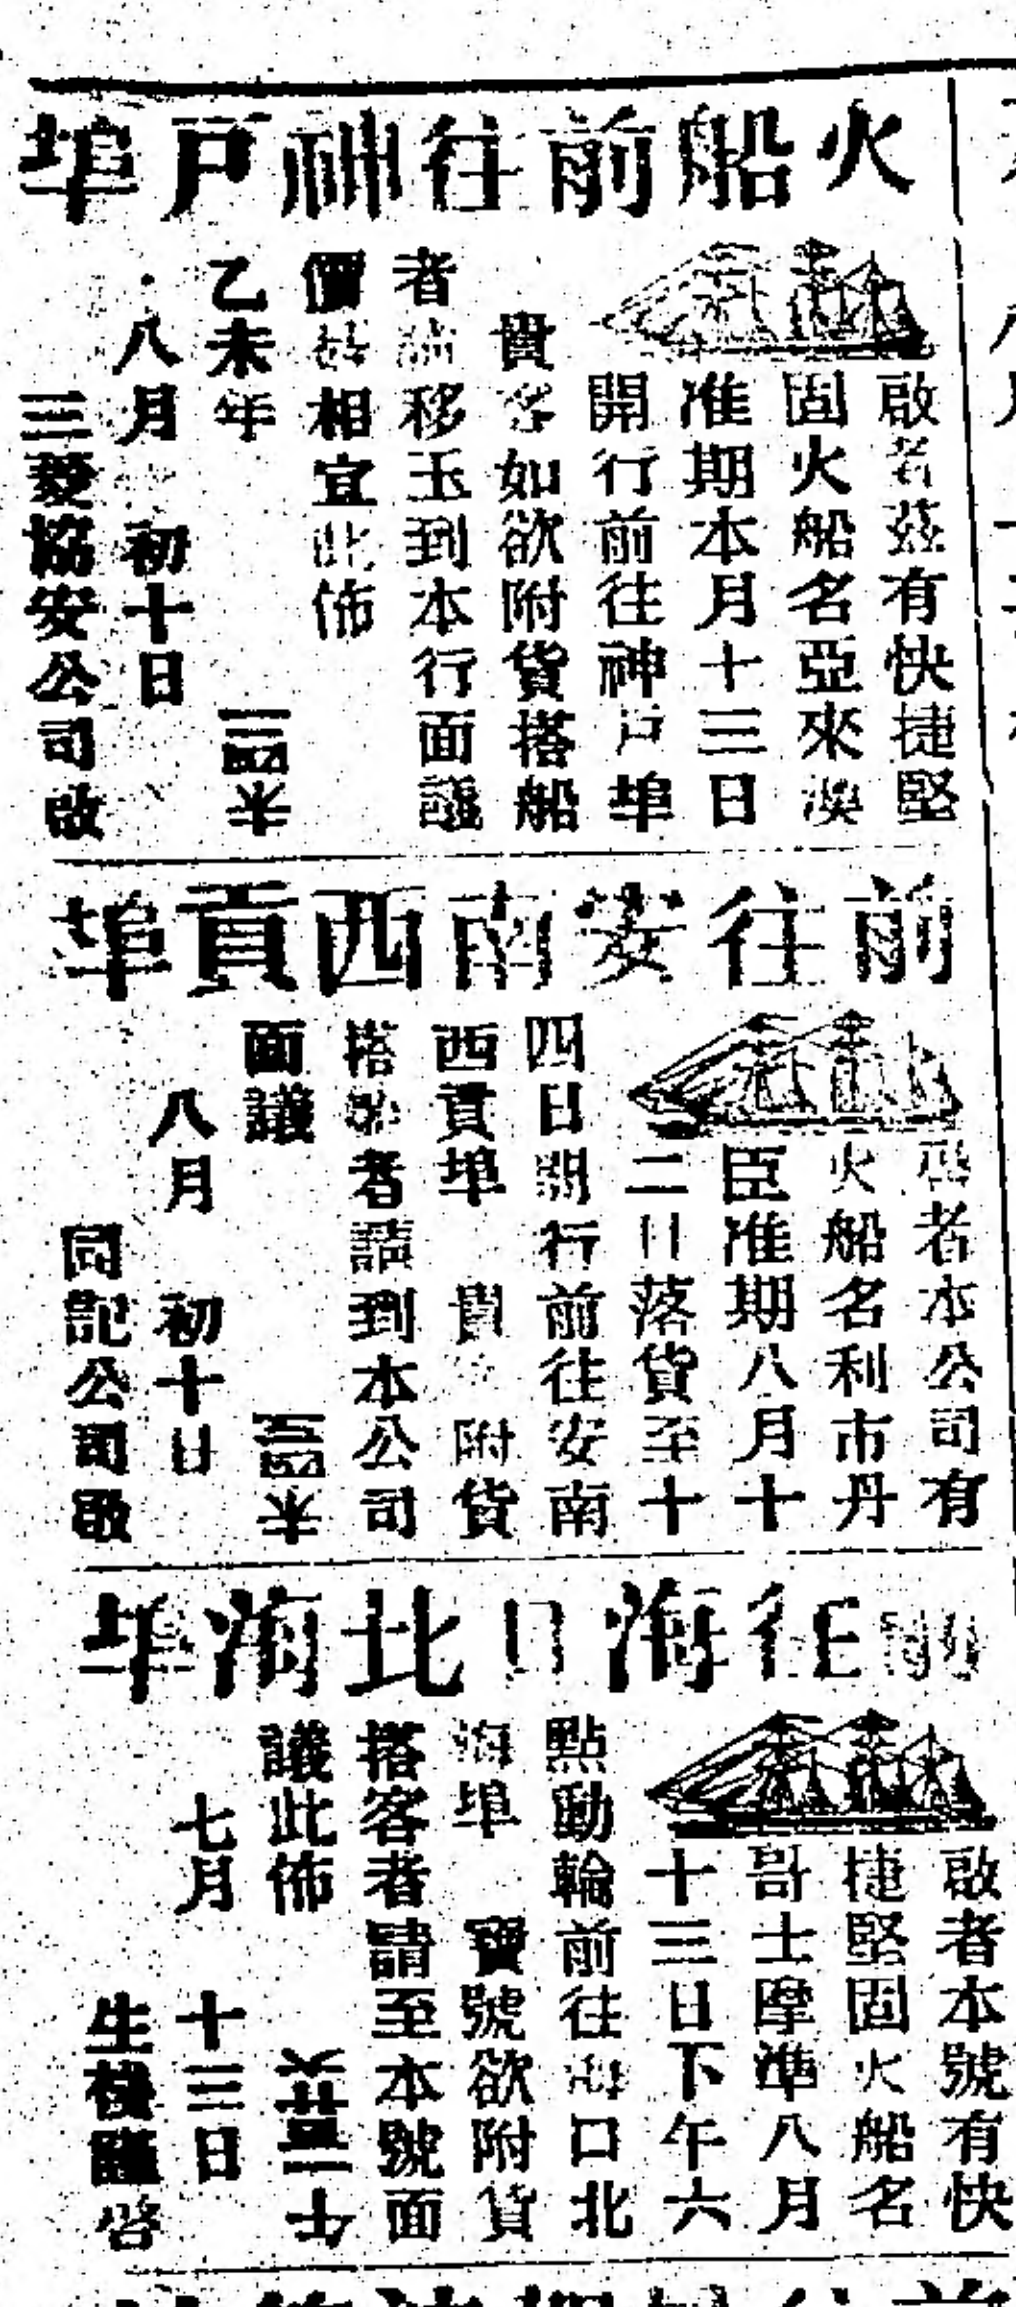 火船前往神戶埠
啟者茲有快捷堅
固火船名亞來澳
准期本月十三日
開行前往神戶埠
貴客如欲附貨搭船
者請移玉到本行面議
價錢相宜此佈
乙未年
八月初十日
三菱協安公司啟
前往安南西貢埠
啓者本公司有
火船名利市丹
臣准期八月十
二日落貨至十
四日開行前往安南
西貢埠 貴 附貨
搭船者請到本公司
面議
八月 初十日
同記公司啟
前往海口北海埠
啟者本號有快
捷堅固火船名
哥士摩準八月
十三日下午六
點動輪前往海口北
海埠 寶號欲附貨
搭客者請至本號面
議此佈
七月 十三日
生 謹啓